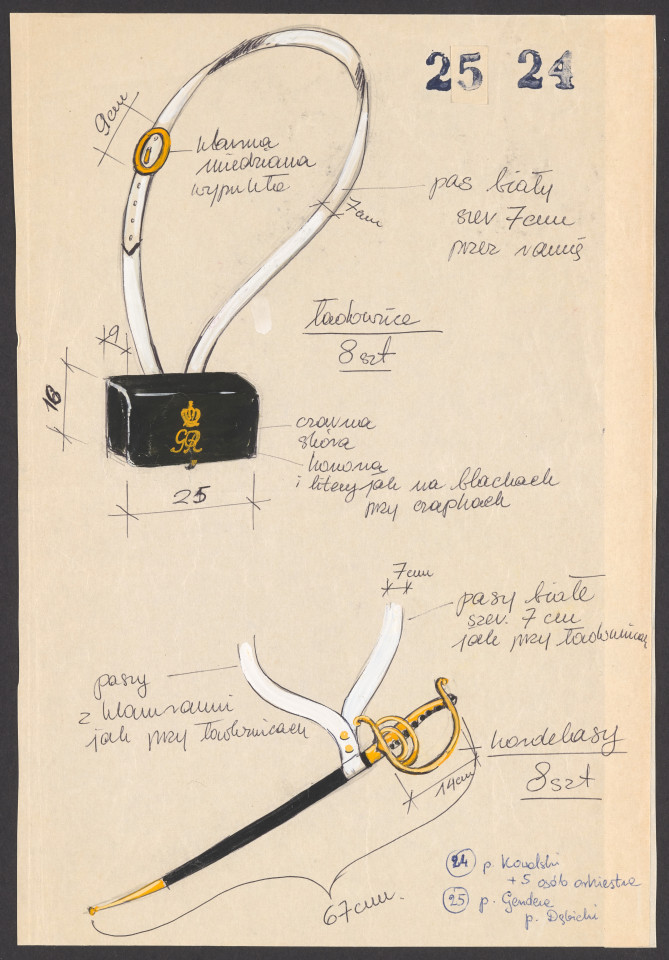 25 24
9cm
klamra
miedziana
wypukła
7cm
pas biały
szer 7cm
przez ramię
ładownice
8 szt
9
16
GR
czarna
skóra
korona
i litery jak na blachach
przy czapkach
25
7cm
pasy białe
szer. 7 cm
jak przy ładownicach
pasy
z klamrami
jak przy ładownicach
kordelasy
8 szt
14cm
67cm.
24 p. Kowalski
+ 5 osób orkiestra
25 p. Gendera
p. Dębicki